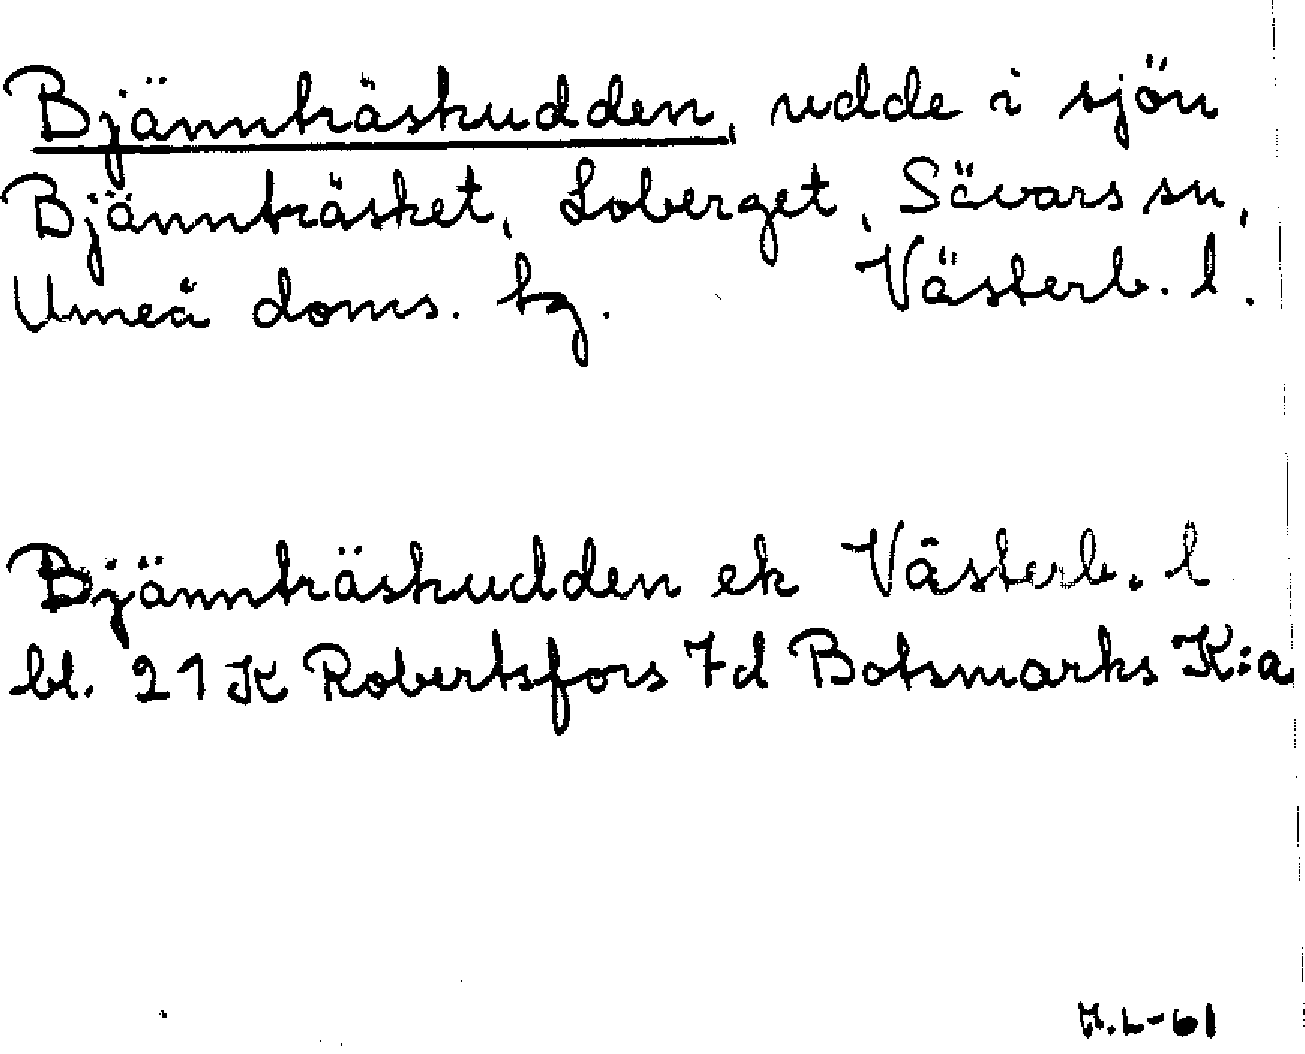 Bjännträskudden, udde i sjön
Bjännträsket, Loberget, Sävars sn,
Umeå doms. tg. Västerb. l.
Bjännträskudden ek Västerb. l
bl. 21 K Robertsfors 7d Botsmarks K:a
M.L-61